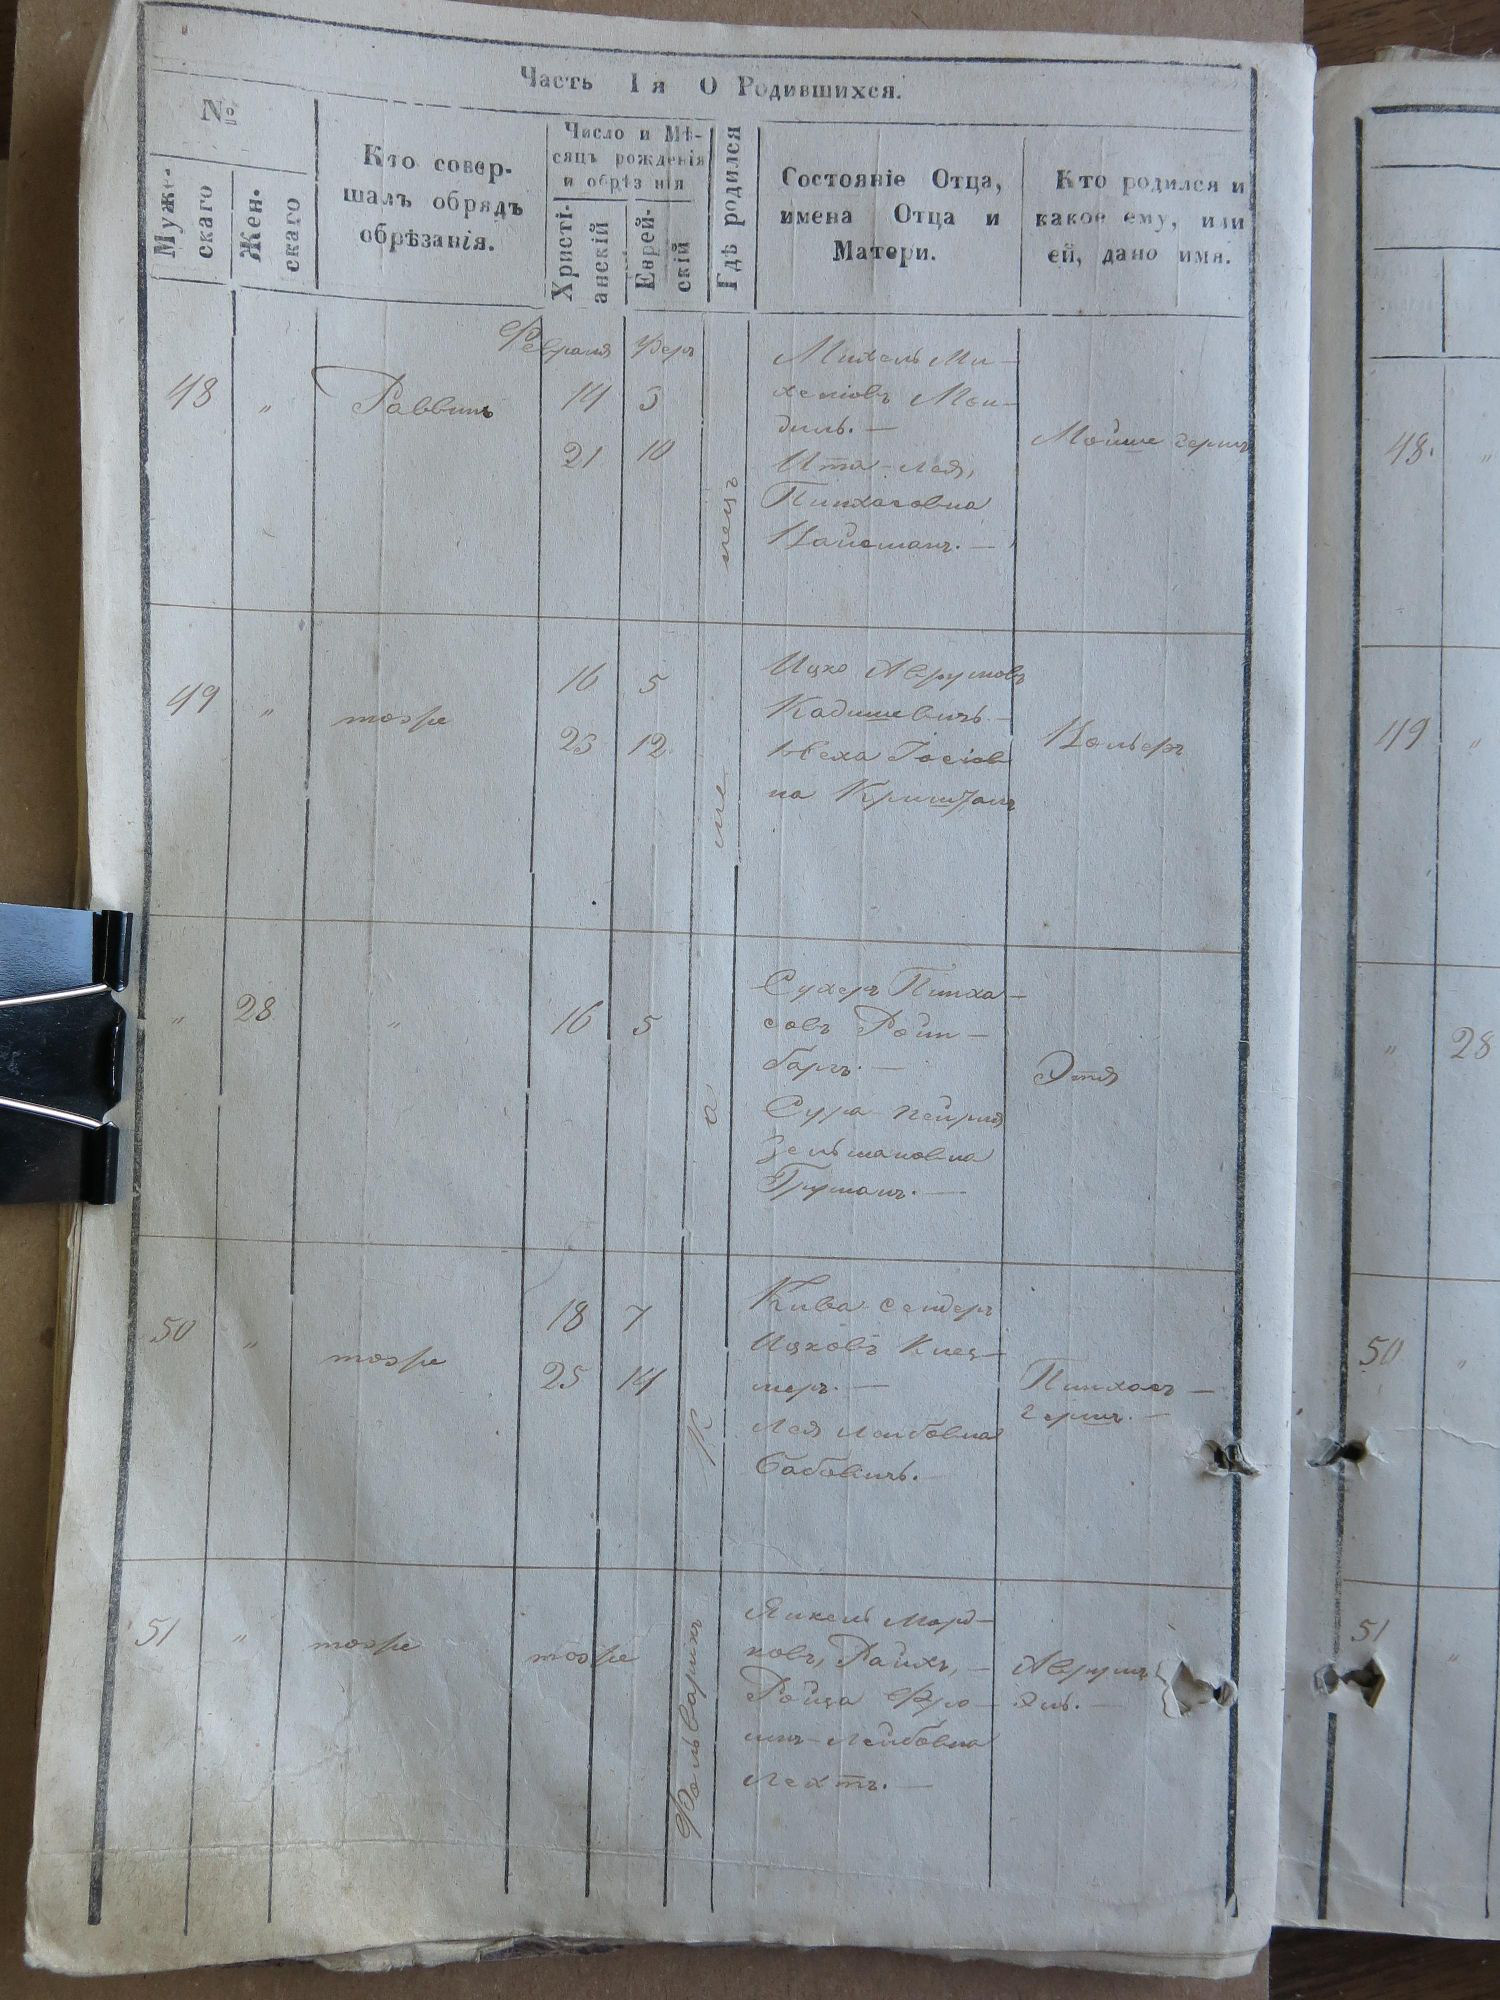 Часть I я О Родившихся.
№
Муже-
скаго
Жен-
скаго
Кто совер-
шалъ обрядъ
обрѣзанія.
Число и Мѣ-
сяцъ рожденія
и обрѣз нія
Христі-
анскій
Еврей-
скій
Гдѣ родился
Состояніе Отца,
имена Отца и
Матери.
Кто родился и
какое ему, или
ей, дано имя.
Февраля
48 „ Раввинъ
14 3
21 10
Михель Ми-
хелiовъ
Ита-Лея,
Пинхасовна
Вайсманъ. —
Мойше герш
49 „ тоэре
16 5
23 12
Ицко Аврумовъ
Кадишевичъ —
Іосіов
на
Вольеръ
„ 28 „
16 5
Сухеръ Пинха-
совъ Ройн-
баръ. —
Сура
Зельмановна
Груманъ. —
Этя
50 „ тоэре
18 7
25 14
Кива-сендеръ
Ицковъ Клец-
меръ. —
Лея Лейбовна
Бабовичъ. —
Пинхасъ —
гершъ. —
51 „ тоэре тоэре
Янкель Морд-
ковъ, Райхъ, —
Ройза Фру-
Лейбовна
Лехтъ. —
Аврумъ
Эль. —
Фольварихъ
К а ме нецъ
48. „
49 „
„ 28
50 „
51 „